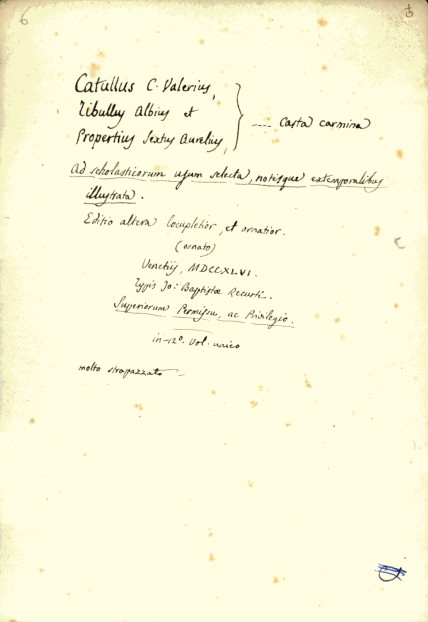 6
Catullus C. Valerius,
Tibullus Albius et
Propertius Sextus Aurelius, } .... Casta carmina
Ad scholasticorum usum selecta, notisque extemporalibus
illustrata.
Editio altera locupletior, et ornatior.
(ornato)
Venetiis, MDCCXLVI.
Typis Jo: Baptistæ Recurti.
Superiorum Permissu, ac Privilegio.
in-12º. Vol. unico
molto strapazzato